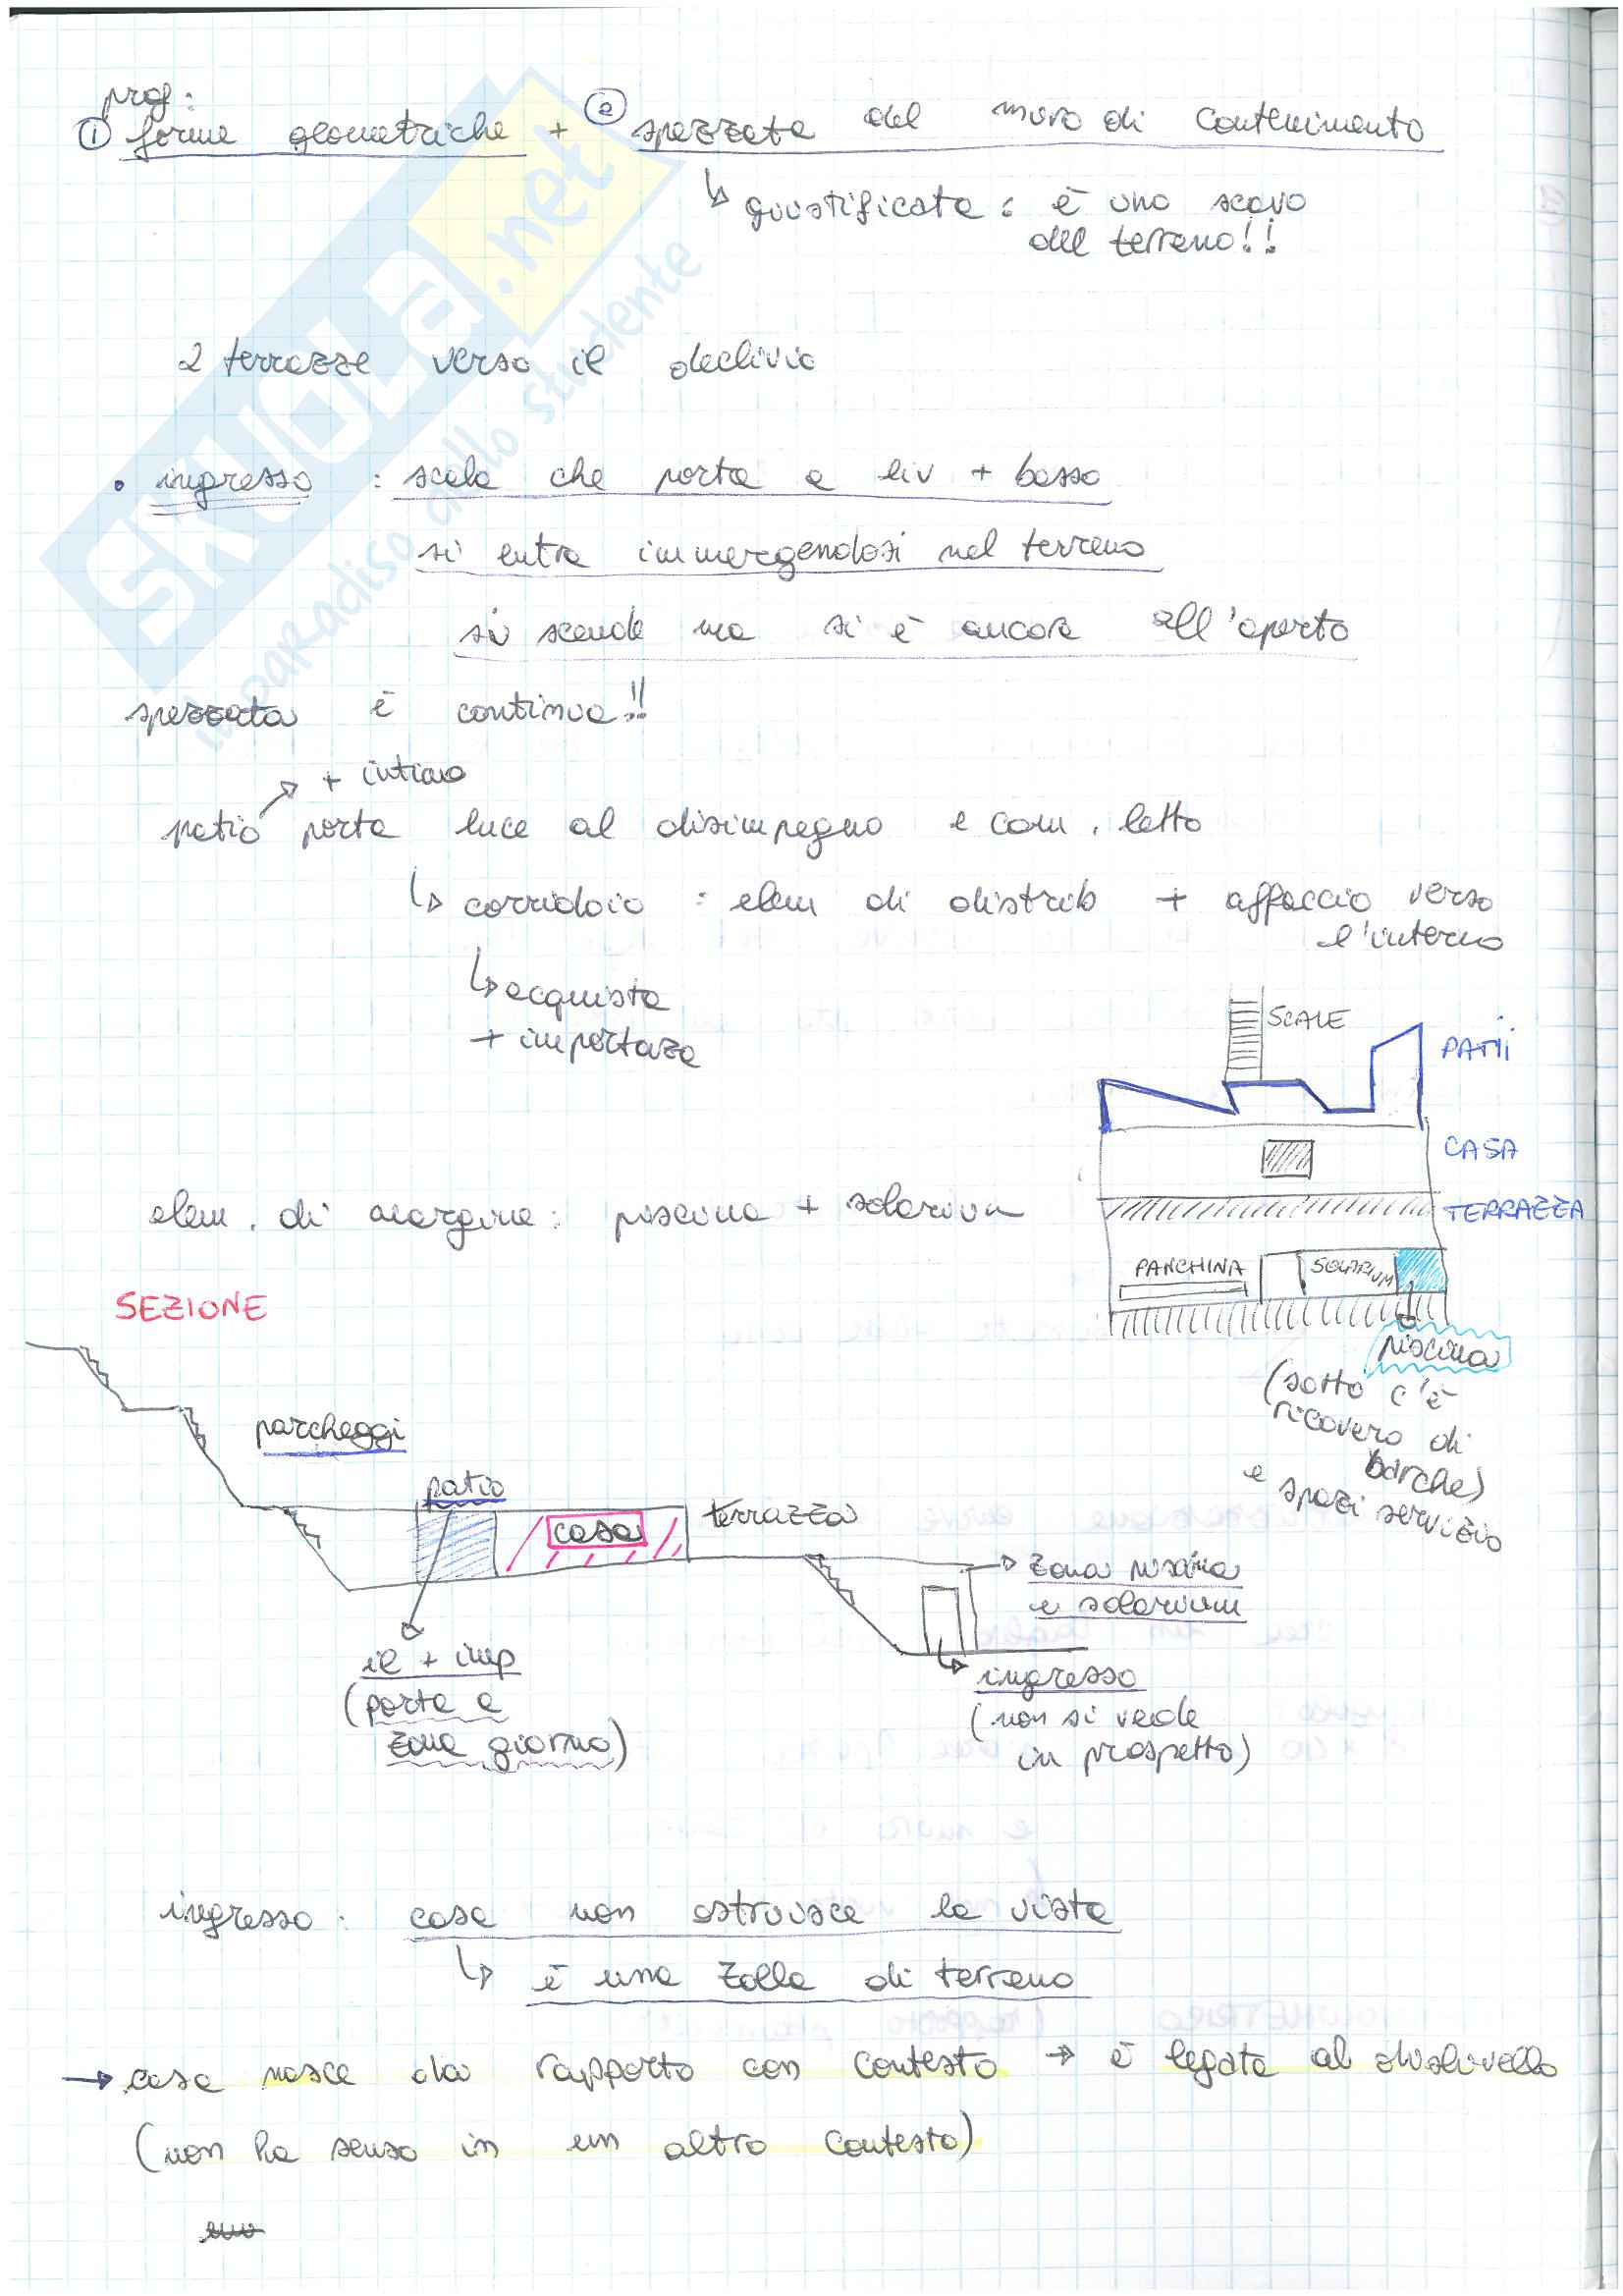 prog:
① forme geometriche + ② spezzata del muro di contenimento
↳ giustificata : è uno scavo
del terreno!!
2 terrazze verso il declivio
• ingresso : scala che porta a liv + basso
si entra immergendosi nel terreno
si scende ma si è ancora all'aperto
spezzata è continua!!
+ intimo
patio porta luce al disimpegno e cam. letto
↳ corridoio : elem di distrib + affaccio verso
l'interno
↳ acquista
+ importaza
SCALE
PATII
CASA
elem. di margine: piscina + solarium
TERRAZZA
PANCHINA
SOLARIUM
SEZIONE
piscina
(sotto c'è
ricovero di
barche)
e spazi servizio
parcheggi
patio
casa
terrazza
zona piscina
e solarium
il + imp
(porta a
zona giorno)
ingresso
(non si vede
in prospetto)
ingresso: casa non ostruisce la vista
↳ è una zolla di terreno
→ casa nasce da rapporto con contesto → è legata al dislivello
(non ha senso in un altro contesto)
SKUOLA.net
il paradiso dello studente